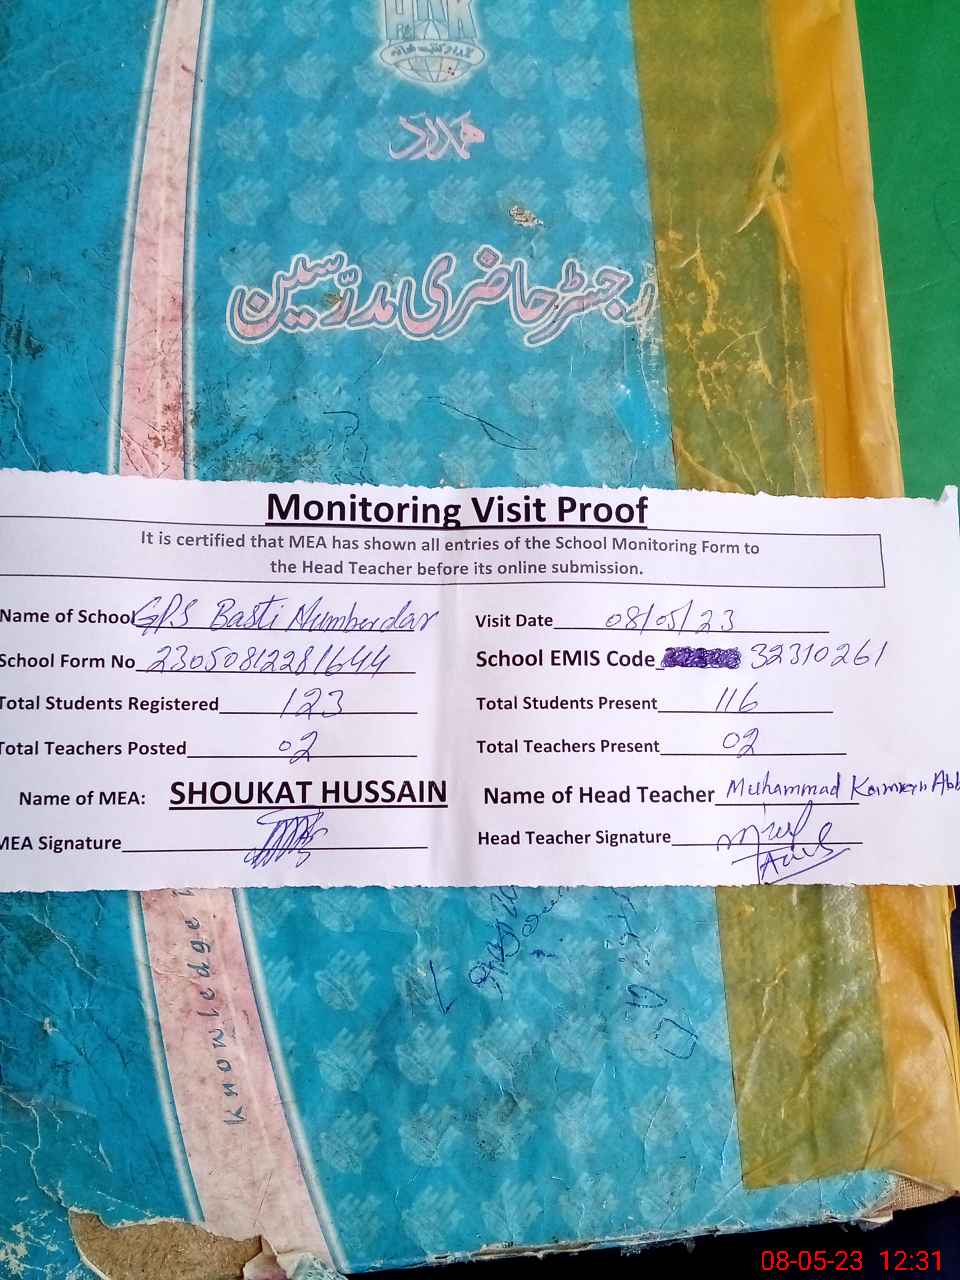 ہمدرد
رجسٹر حاضری مدرّسین
Monitoring Visit Proof
It is certified that MEA has shown all entries of the School Monitoring Form to
the Head Teacher before its online submission.
Name of School GPS Basti Numberdar Visit Date 08/05/23
School Form No 23050812281644 School EMIS Code 32310261
Total Students Registered 123 Total Students Present 116
Total Teachers Posted 02 Total Teachers Present 02
Name of MEA: SHOUKAT HUSSAIN Name of Head Teacher Muhammad
MEA Signature Head Teacher Signature
Knowledge
08-05-23 12:31